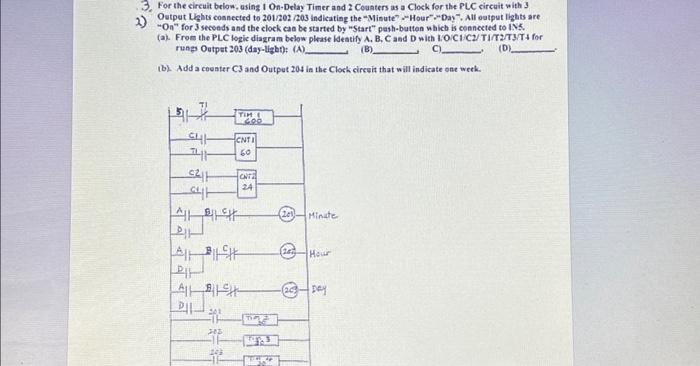 3. For the circuit below, using 1 On-Delay Timer and 2 Counters as a Clock for the PLC circuit with 3
2) Output Lights connected to 201/202 /203 indicating the "Minute" -"Hour"-"Day". All output lights are
"On" for 3 seconds and the clock can be started by "Start" push-button which is connected to IN5.
(a). From the PLC logic diagram below please identify A, B, C and D with I/O/C1/C2/ T1/T2/T3/T4 for
rungs Output 203 (day-light): (A)______ (B)______ C)______ (D)______
(b). Add a counter C3 and Output 204 in the Clock circuit that will indicate one week.
5 T1 TIM 1
600
C1 CNT1
T1 60
C2 CNT2
C1 24
A B C 201 Minute
D
A B C 202 Hour
D
A B C 203 Day
D
201
202
203